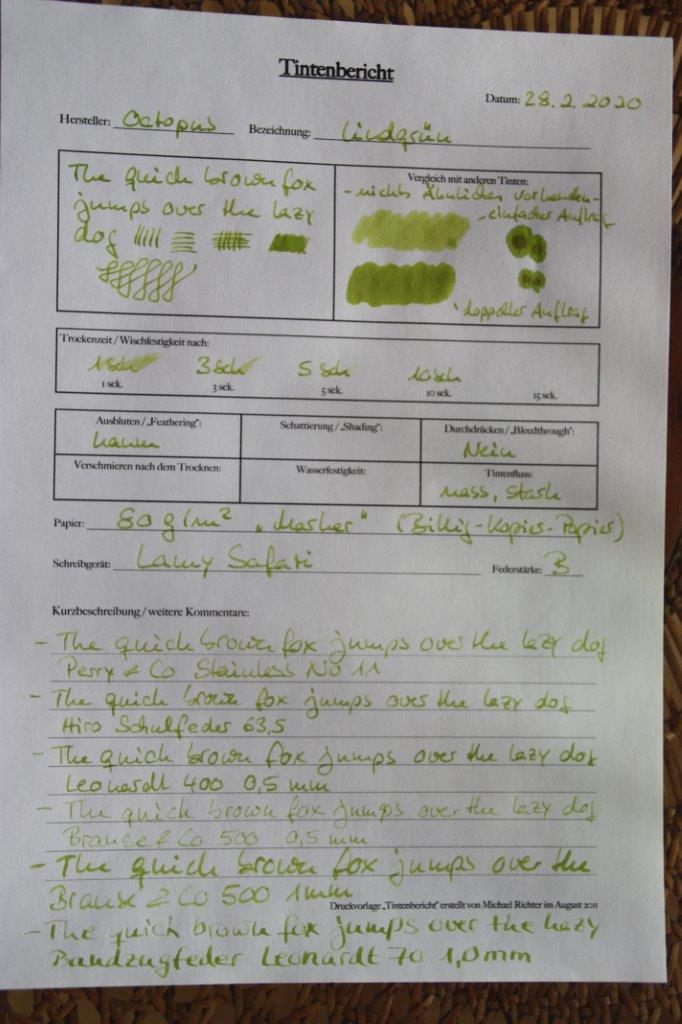 Tintenbericht
Datum: 28.2.2020
Hersteller: Octopus Bezeichnung: Lindgrün
The quick brown fox
jumps over the lazy
dog
Vergleich mit anderen Tinten:
- nichts Ähnliches vorhanden -
einfacher Auftrag
doppelter Auftrag
Trockenzeit / Wischfestigkeit nach:
1 sek 3 sek 5 sek 10 sek
1 sek. 3 sek. 5 sek. 10 sek. 15 sek.
Ausbluten / „Feathering": Schattierung / „Shading": Durchdrücken / „Bleedthrough":
kaum Nein
Verschmieren nach dem Trocknen: Wasserfestigkeit: Tintenfluss:
nass, stark
Papier: 80 g/m² (Billig-Kopier-Papier)
Schreibgerät: Lamy Safari Federstärke: B
Kurzbeschreibung / weitere Kommentare:
- The quick brown fox jumps over the lazy dog
Perry & Co Stainless No 11
- The quick brown fox jumps over the lazy dog
Hiro Schulfeder 63,5
- The quick brown fox jumps over the lazy dog
Leonardt 400 0,5 mm
- The quick brown fox jumps over the lazy dog
Brause & Co 500 0,5 mm
- The quick brown fox jumps over the
Brause & Co 500 1mm
Druckvorlage „Tintenbericht" erstellt von Michael Richter im August 2011
- The quick brown fox jumps over the lazy
Bandzugfeder Leonardt 70 1,0mm